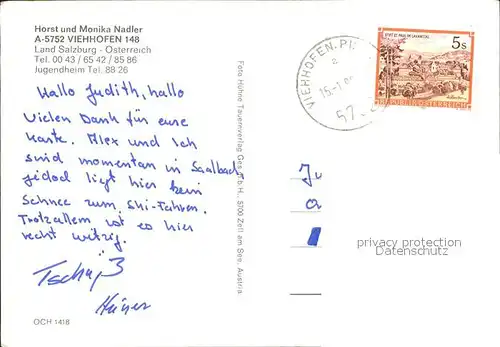 Horst und Monika Nadler
A-5752 VIEHHOFEN 148
Land Salzburg - Österreich
Tel. 00 43 / 65 42 / 85 86
Jugendheim Tel. 88 26
Hallo Judith, hallo
Vielen Dank für eure
Karte. Alex und Ich
sind momentan in Saalbach
jedoch liegt hier kein
Schnee zum Ski-Fahren.
Trotzallem ist es hier
recht witzig.
Tschüß
Heiner
OCH 1418
Foto Höhne Tauernverlag Ges.m.b.H., 5700 Zell am See, Austria
VIEHHOFEN, PI
a
15.-1.
57
5s
STIFT ST. PAUL IM LAVANTTAL
REPUBLIK ÖSTERREICH
Ju
a
privacy protection
Datenschutz